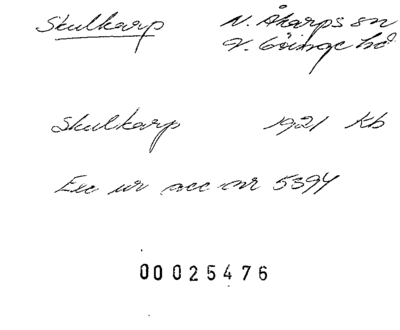 Skulkarp N. Åkarps sn
V. Göinge hd
Skulkarp 1921 Kb
Exc ur acc nr 5394
00025476